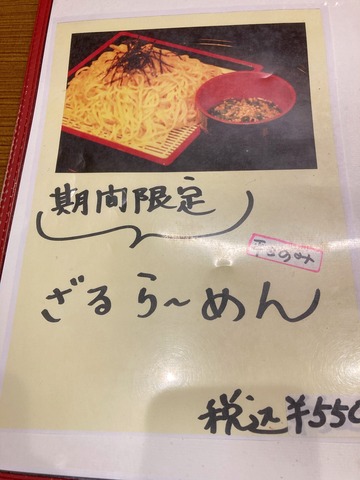 期間限定
平日のみ
ざるら～めん
税込¥550